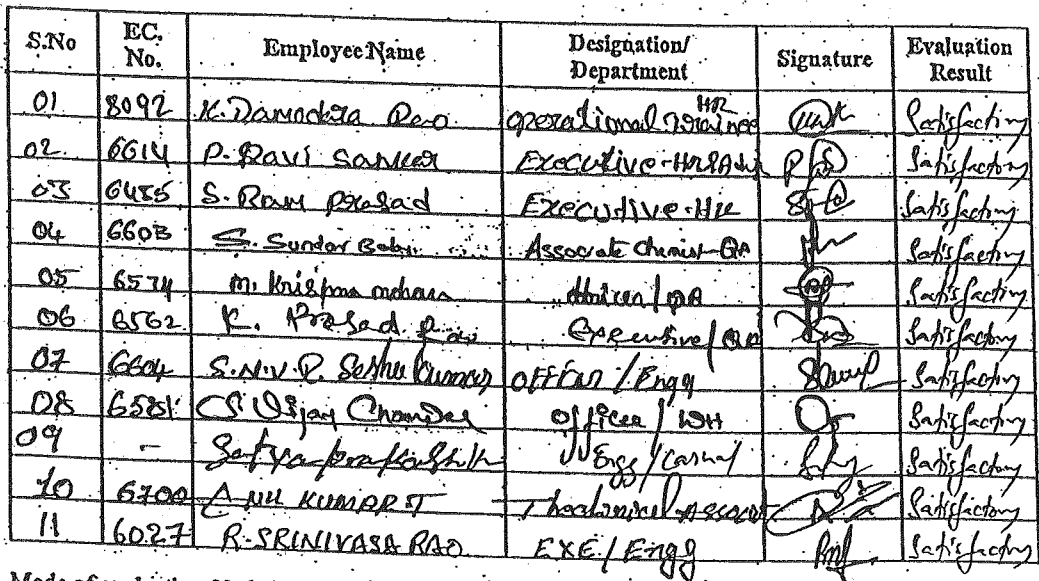 S.No EC. No. Employee Name Designation/ Department Signature Evaluation Result
01 8092 K. Damodara Rao operational Trainee HR Satisfactory
02 6614 P. Ravi Sankar Executive-HR&Adm Satisfactory
03 6485 S. Ram Prasad Executive-HR Satisfactory
04 6603 S. Sundar Babu Associate Chemist-QA Satisfactory
05 6574 M. Krishna mohan /QA Satisfactory
06 6562 K. Prasad Rao Executive/QA Satisfactory
07 6604 S.N.V.R. Seshu Kumar officer/Engg Satisfactory
08 6581 Vijay Chander Officer/WH Satisfactory
09 - Engg/Casual Satisfactory
10 6700 ANIL KUMAR T Satisfactory
11 6027 R. SRINIVASA RAO EXE/Engg Satisfactory